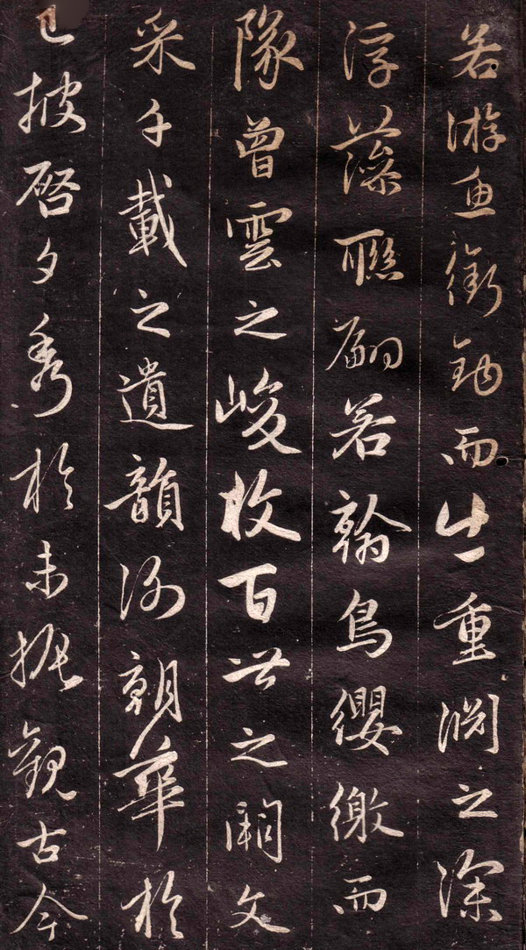 若游魚銜鉤而出重淵之深
浮藻聯翩若翰鳥纓繳而
隊曾雲之峻收百世之闕文
采千載之遺韻謝朝華於
已披啓夕秀於未振觀古今